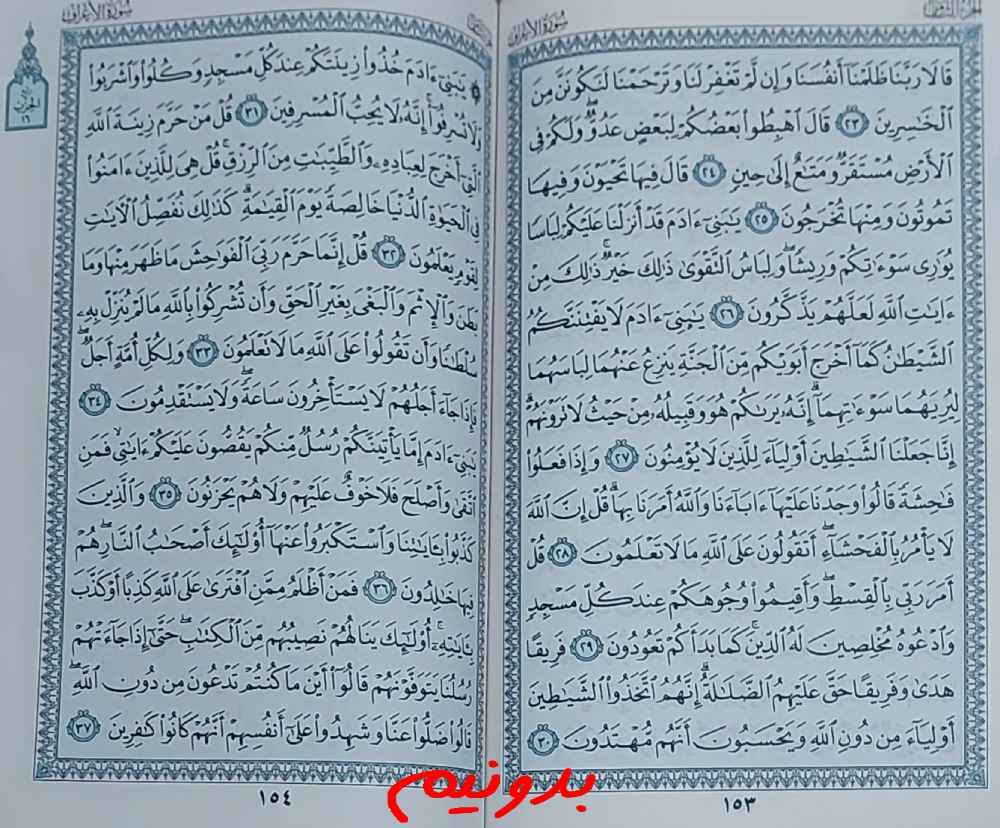 الجزء الثامن
سورة الأعراف
قَالَا رَبَّنَا ظَلَمْنَا أَنفُسَنَا وَإِن لَّمْ تَغْفِرْ لَنَا وَتَرْحَمْنَا لَنَكُونَنَّ مِنَ
الْخَاسِرِينَ ﴿٢٣﴾ قَالَ اهْبِطُوا بَعْضُكُمْ لِبَعْضٍ عَدُوٌّ ۖ وَلَكُمْ فِي
الْأَرْضِ مُسْتَقَرٌّ وَمَتَاعٌ إِلَىٰ حِينٍ ﴿٢٤﴾ قَالَ فِيهَا تَحْيَوْنَ وَفِيهَا
تَمُوتُونَ وَمِنْهَا تُخْرَجُونَ ﴿٢٥﴾ يَا بَنِي آدَمَ قَدْ أَنزَلْنَا عَلَيْكُمْ لِبَاسًا
يُوَارِي سَوْءَاتِكُمْ وَرِيشًا ۖ وَلِبَاسُ التَّقْوَىٰ ذَٰلِكَ خَيْرٌ ۚ ذَٰلِكَ مِنْ
آيَاتِ اللَّهِ لَعَلَّهُمْ يَذَّكَّرُونَ ﴿٢٦﴾ يَا بَنِي آدَمَ لَا يَفْتِنَنَّكُمُ
الشَّيْطَانُ كَمَا أَخْرَجَ أَبَوَيْكُم مِّنَ الْجَنَّةِ يَنزِعُ عَنْهُمَا لِبَاسَهُمَا
لِيُرِيَهُمَا سَوْءَاتِهِمَا ۗ إِنَّهُ يَرَاكُمْ هُوَ وَقَبِيلُهُ مِنْ حَيْثُ لَا تَرَوْنَهُمْ ۗ
إِنَّا جَعَلْنَا الشَّيَاطِينَ أَوْلِيَاءَ لِلَّذِينَ لَا يُؤْمِنُونَ ﴿٢٧﴾ وَإِذَا فَعَلُوا
فَاحِشَةً قَالُوا وَجَدْنَا عَلَيْهَا آبَاءَنَا وَاللَّهُ أَمَرَنَا بِهَا ۗ قُلْ إِنَّ اللَّهَ
لَا يَأْمُرُ بِالْفَحْشَاءِ ۖ أَتَقُولُونَ عَلَى اللَّهِ مَا لَا تَعْلَمُونَ ﴿٢٨﴾ قُلْ
أَمَرَ رَبِّي بِالْقِسْطِ ۖ وَأَقِيمُوا وُجُوهَكُمْ عِندَ كُلِّ مَسْجِدٍ
وَادْعُوهُ مُخْلِصِينَ لَهُ الدِّينَ ۚ كَمَا بَدَأَكُمْ تَعُودُونَ ﴿٢٩﴾ فَرِيقًا
هَدَىٰ وَفَرِيقًا حَقَّ عَلَيْهِمُ الضَّلَالَةُ ۗ إِنَّهُمُ اتَّخَذُوا الشَّيَاطِينَ
أَوْلِيَاءَ مِن دُونِ اللَّهِ وَيَحْسَبُونَ أَنَّهُم مُّهْتَدُونَ ﴿٣٠﴾
١٥٣
سورة الأعراف
يَا بَنِي آدَمَ خُذُوا زِينَتَكُمْ عِندَ كُلِّ مَسْجِدٍ وَكُلُوا وَاشْرَبُوا
وَلَا تُسْرِفُوا ۚ إِنَّهُ لَا يُحِبُّ الْمُسْرِفِينَ ﴿٣١﴾ قُلْ مَنْ حَرَّمَ زِينَةَ اللَّهِ
الَّتِي أَخْرَجَ لِعِبَادِهِ وَالطَّيِّبَاتِ مِنَ الرِّزْقِ ۚ قُلْ هِيَ لِلَّذِينَ آمَنُوا
فِي الْحَيَاةِ الدُّنْيَا خَالِصَةً يَوْمَ الْقِيَامَةِ ۗ كَذَٰلِكَ نُفَصِّلُ الْآيَاتِ
لِقَوْمٍ يَعْلَمُونَ ﴿٣٢﴾ قُلْ إِنَّمَا حَرَّمَ رَبِّيَ الْفَوَاحِشَ مَا ظَهَرَ مِنْهَا وَمَا
بَطَنَ وَالْإِثْمَ وَالْبَغْيَ بِغَيْرِ الْحَقِّ وَأَن تُشْرِكُوا بِاللَّهِ مَا لَمْ يُنَزِّلْ بِهِ
سُلْطَانًا وَأَن تَقُولُوا عَلَى اللَّهِ مَا لَا تَعْلَمُونَ ﴿٣٣﴾ وَلِكُلِّ أُمَّةٍ أَجَلٌ ۖ
فَإِذَا جَاءَ أَجَلُهُمْ لَا يَسْتَأْخِرُونَ سَاعَةً ۖ وَلَا يَسْتَقْدِمُونَ ﴿٣٤﴾
يَا بَنِي آدَمَ إِمَّا يَأْتِيَنَّكُمْ رُسُلٌ مِّنكُمْ يَقُصُّونَ عَلَيْكُمْ آيَاتِي ۙ فَمَنِ
اتَّقَىٰ وَأَصْلَحَ فَلَا خَوْفٌ عَلَيْهِمْ وَلَا هُمْ يَحْزَنُونَ ﴿٣٥﴾ وَالَّذِينَ
كَذَّبُوا بِآيَاتِنَا وَاسْتَكْبَرُوا عَنْهَا أُولَٰئِكَ أَصْحَابُ النَّارِ ۖ هُمْ
فِيهَا خَالِدُونَ ﴿٣٦﴾ فَمَنْ أَظْلَمُ مِمَّنِ افْتَرَىٰ عَلَى اللَّهِ كَذِبًا أَوْ كَذَّبَ
بِآيَاتِهِ ۚ أُولَٰئِكَ يَنَالُهُمْ نَصِيبُهُم مِّنَ الْكِتَابِ ۖ حَتَّىٰ إِذَا جَاءَتْهُمْ
رُسُلُنَا يَتَوَفَّوْنَهُمْ قَالُوا أَيْنَ مَا كُنتُمْ تَدْعُونَ مِن دُونِ اللَّهِ ۖ
قَالُوا ضَلُّوا عَنَّا وَشَهِدُوا عَلَىٰ أَنفُسِهِمْ أَنَّهُمْ كَانُوا كَافِرِينَ ﴿٣٧﴾
١٥٤
الحزب
١٦
بدونيم